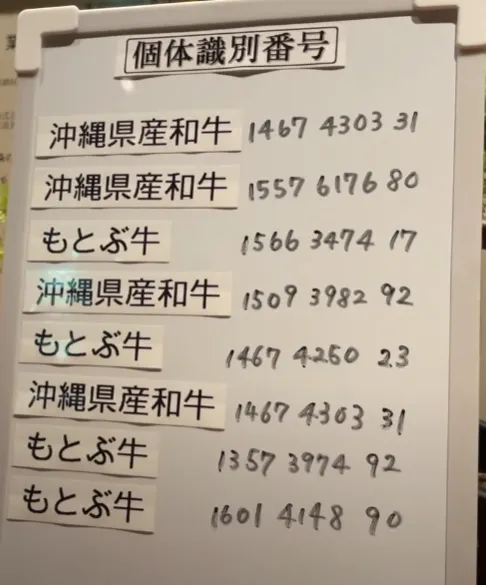 個体識別番号
沖縄県産和牛 1467 4303 31
沖縄県産和牛 1557 6176 80
もとぶ牛 1566 3474 17
沖縄県産和牛 1509 3982 92
もとぶ牛 1467 4250 23
沖縄県産和牛 1467 4303 31
もとぶ牛 1357 3974 92
もとぶ牛 1601 4148 90